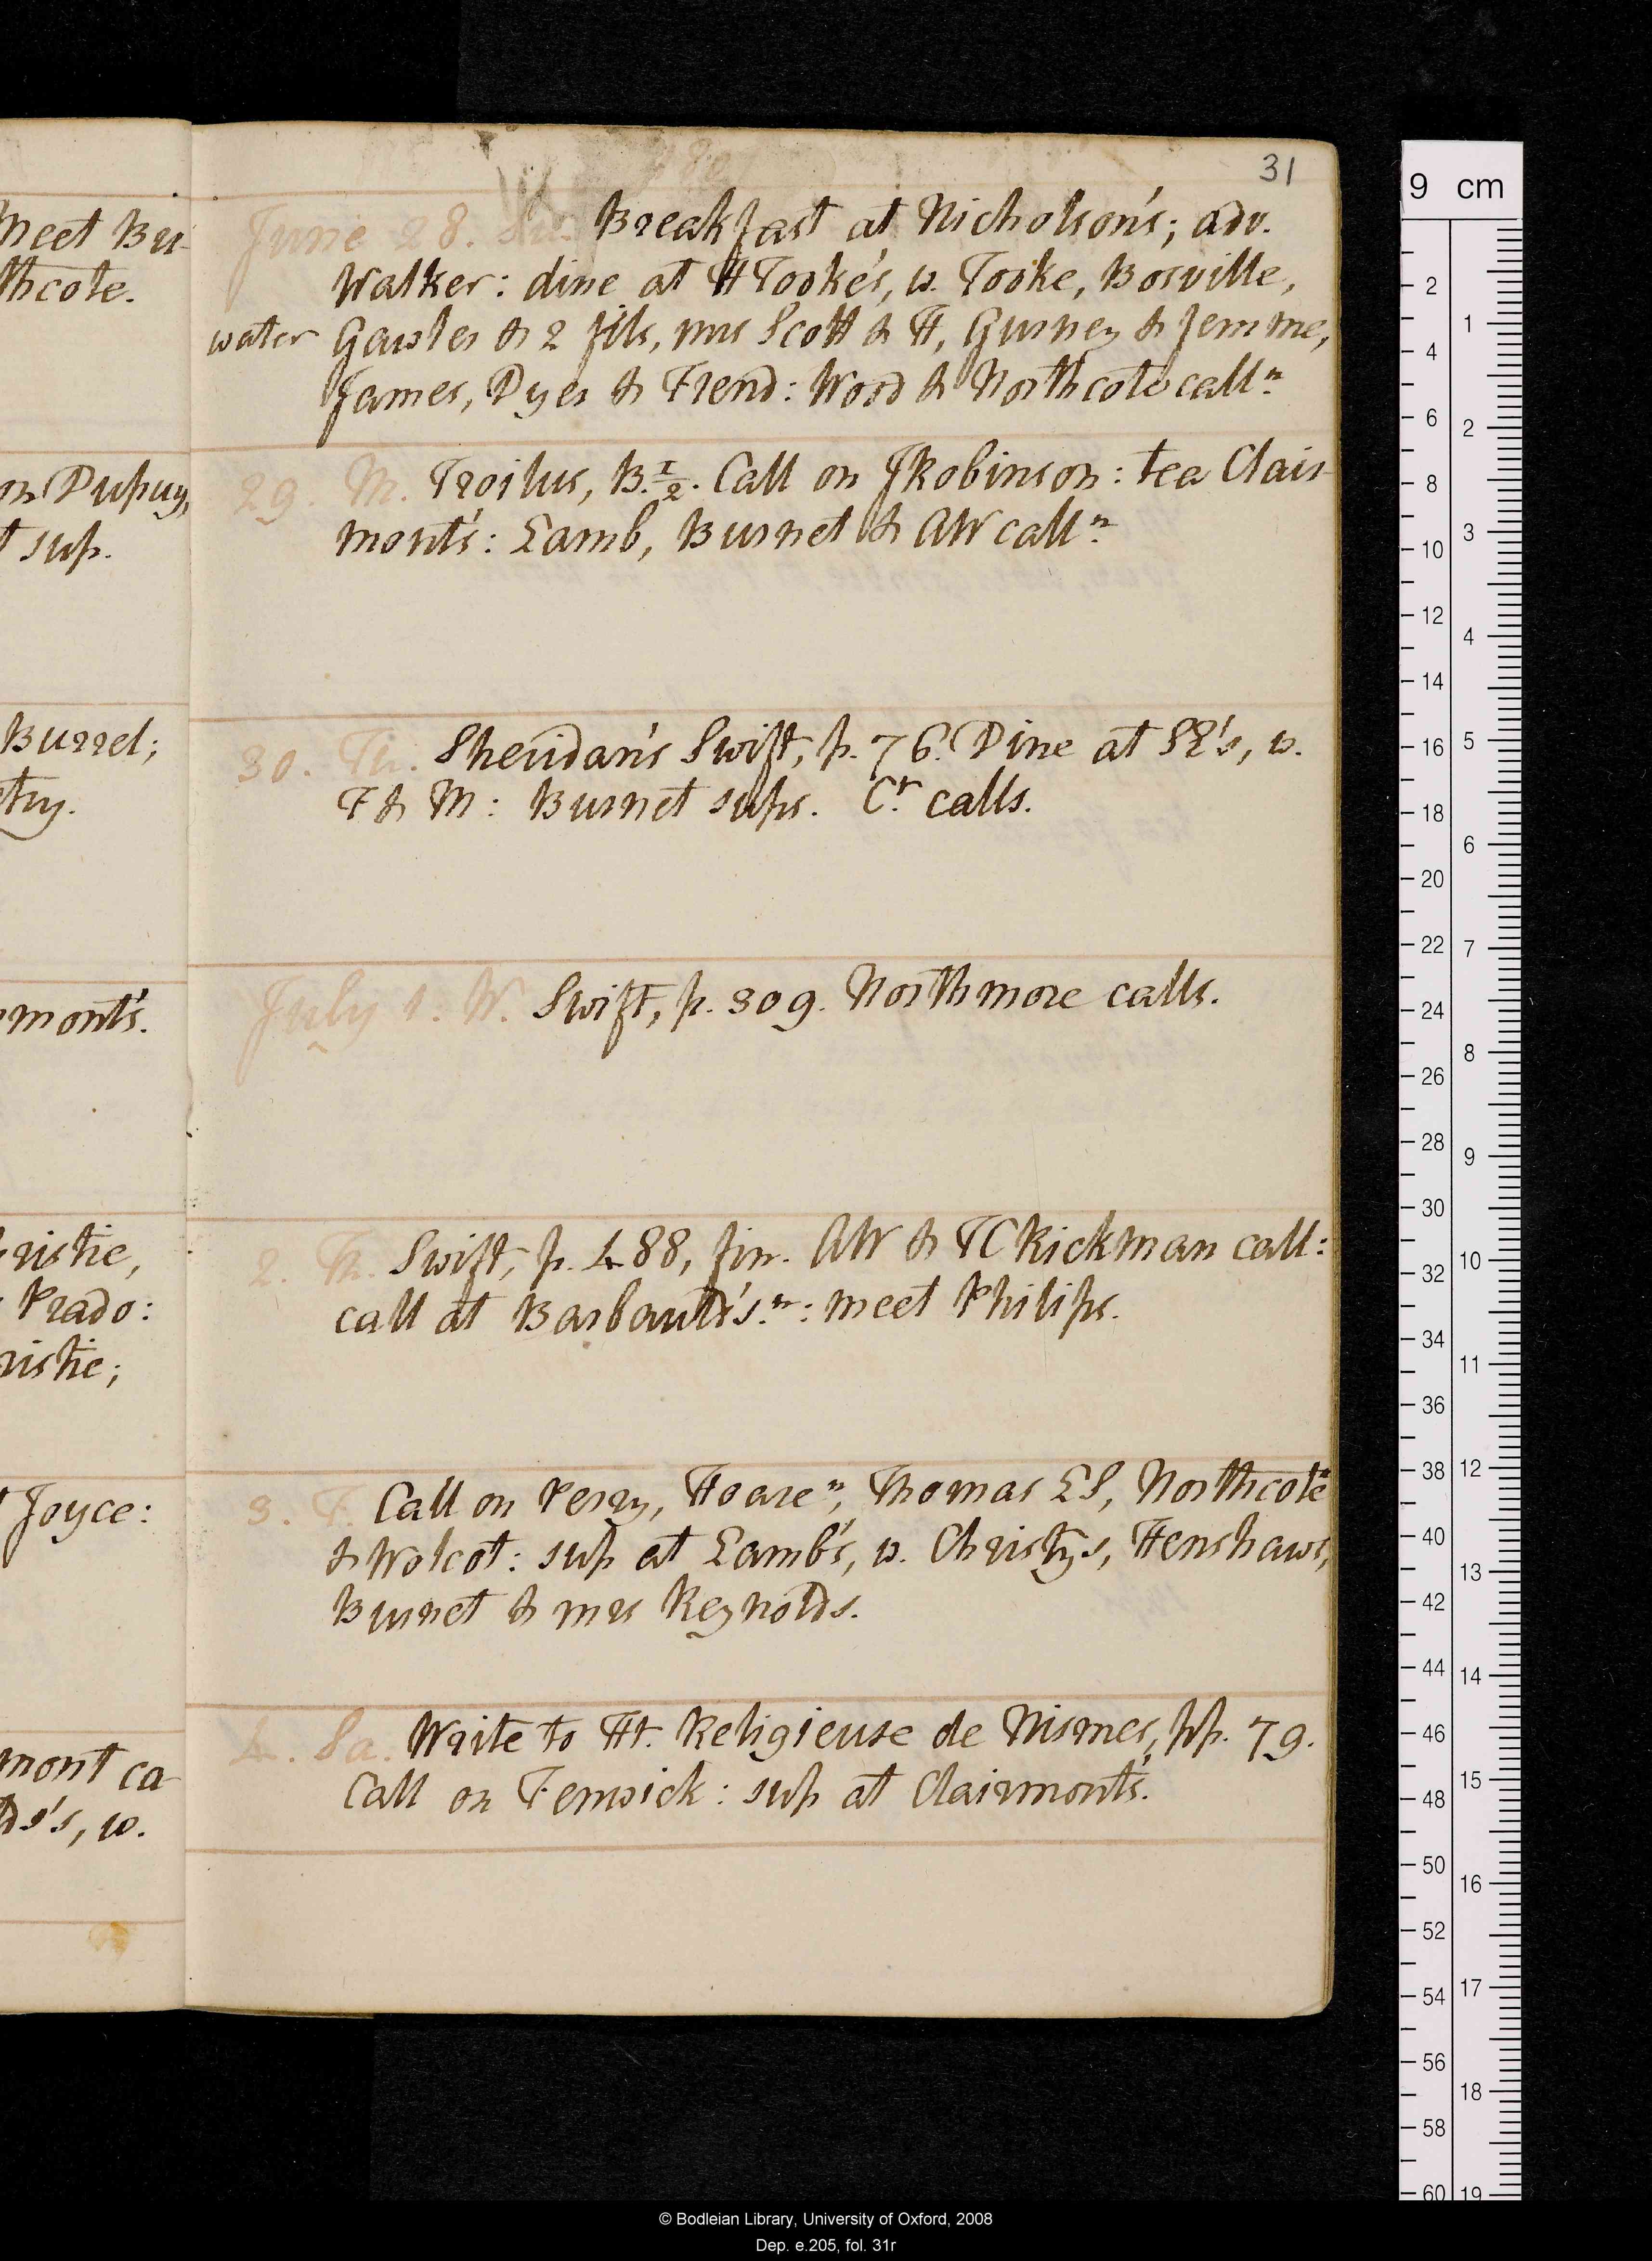 31
Meet Bu-
thcote.
on Dupuy,
t sup.
Burrel;
try.
monts'.
ristie,
Prado:
ristie;
Joyce:
mont ca
ds's, w.
June 28. Su. Breakfast at Nicholson's; adv.
Walker: dine at H Tooke's, w. Tooke, Bosville,
water Gawler & 2 fils, mrs Scott & H, Gurney & femme,
James, Dyer & Frend: Wood & Northcote calln.
29. M. Troilus, B. ½. Call on J Robinson: tea Clair-
mont's: Lamb, Burnet & AW calln.
30. Tu. Sheridan's Swift, p. 76. Dine at , w.
F & M: Burnet sups. Cr. calls.
July 1. W. Swift, p. 309. Northmore calls.
2. Th. Swift, p. 488, fin. AW & TC Rickman call:
call at Barbauld's.n: meet Philips.
3. F. Call on Perry, Hoaren, Thomas LS, Northcoten
& Wolcot: sup at Lamb's, w. Christys, Henshaws,
Burnet & mrs Reynolds.
4. Sa. Write to Ht. Religieuse de Nismes, pp. 79.
Call on Fenwick: sup at Clairmont's.
9 cm
2
4
6
8
10
12
14
16
18
20
22
24
26
28
30
32
34
36
38
40
42
44
46
48
50
52
54
56
58
60
1
2
3
4
5
6
7
8
9
10
11
12
13
14
15
16
17
18
19
© Bodleian Library, University of Oxford, 2008
Dep. e.205, fol. 31r